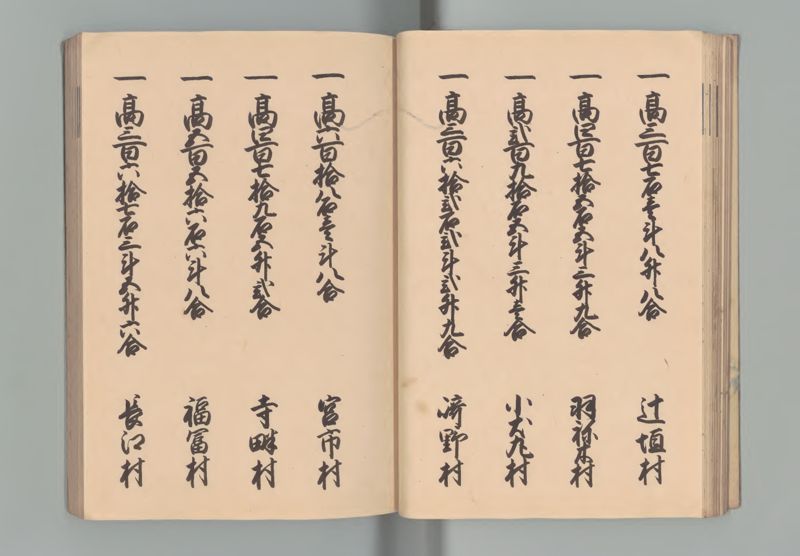 一 高三百七石壱斗八升八合 辻垣村
一 高四百七拾五石五斗三升九合 羽根木村
一 高弐百九拾石五斗三升壱合 小犬丸村
一 高三百六拾弐石弐斗弐升九合 崎野村
一 高六百拾八石壱斗八合 宮市村
一 高四百七拾九石五升弐合 寺畔村
一 高五百五拾六石六斗八合 福冨村
一 高三百六拾七石三斗五升六合 長江村